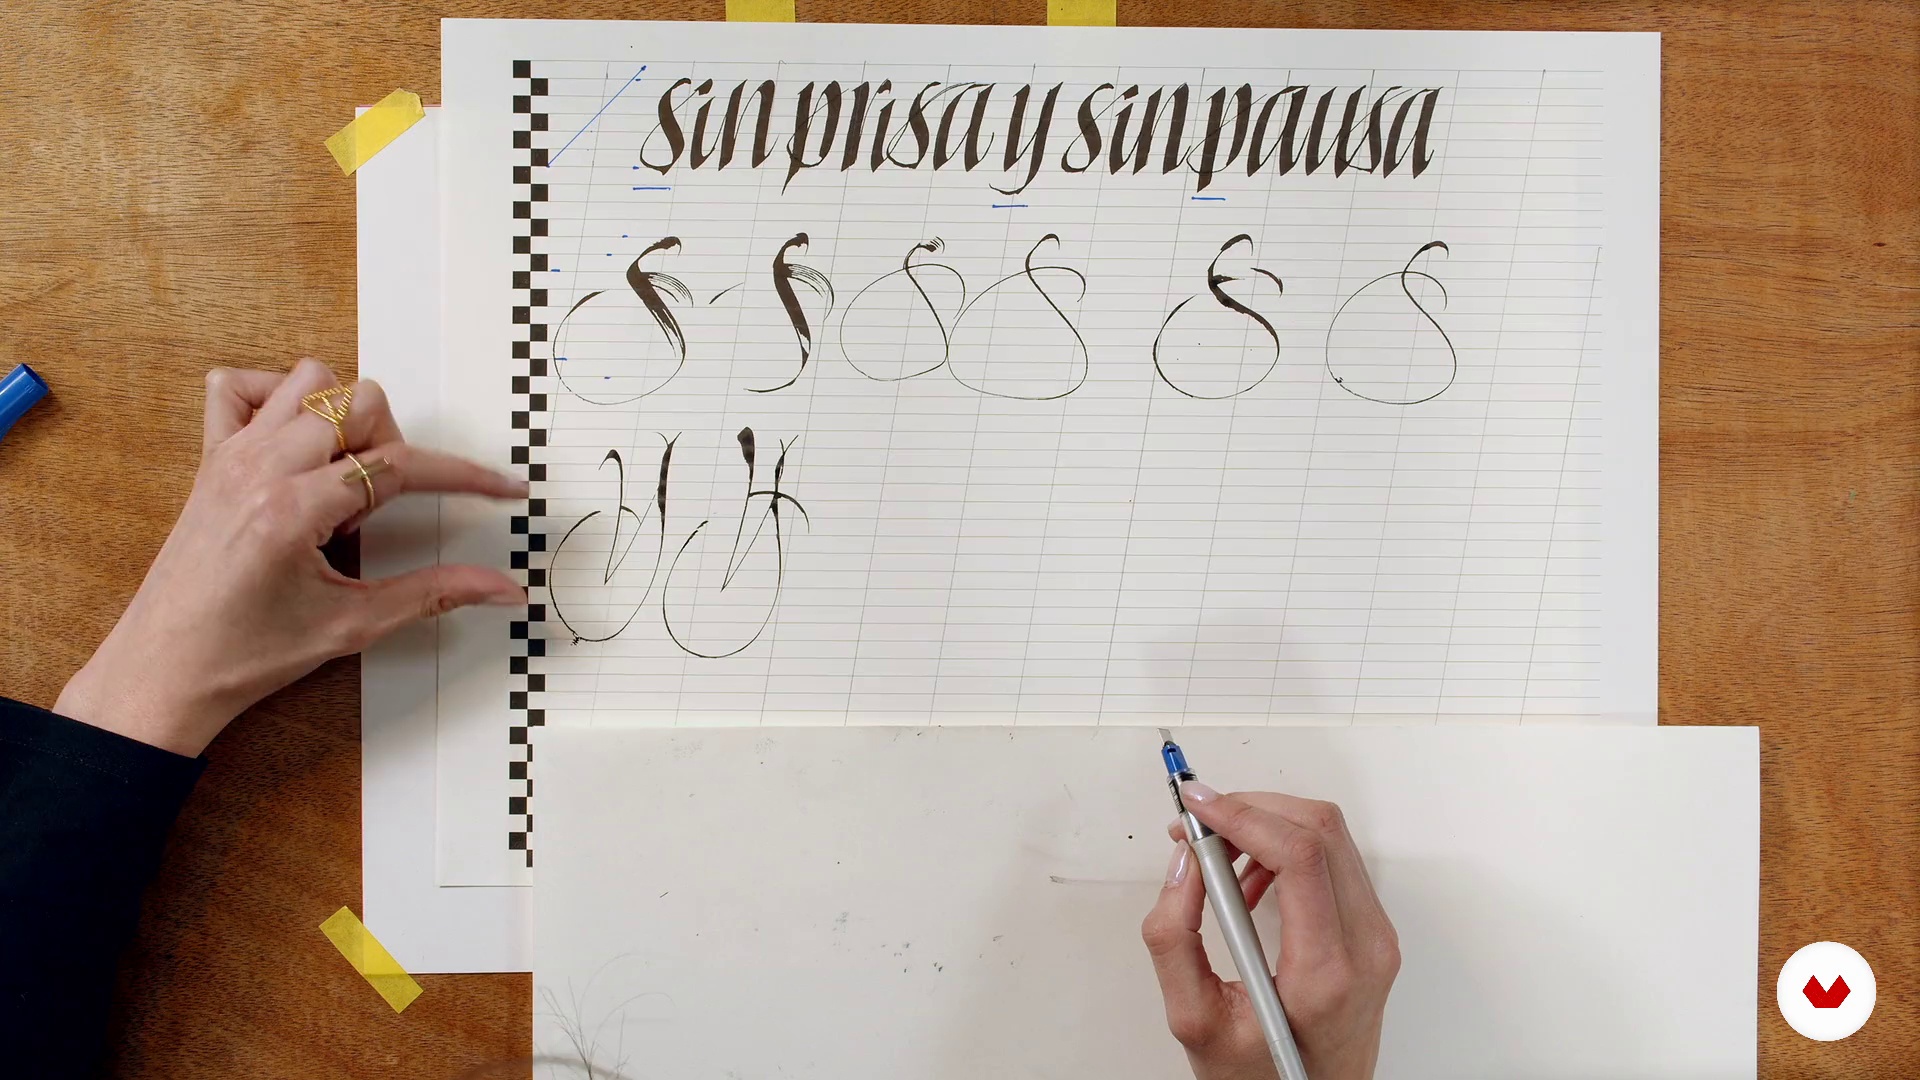 sin prisa y sin pausa
S S S S S S
y y